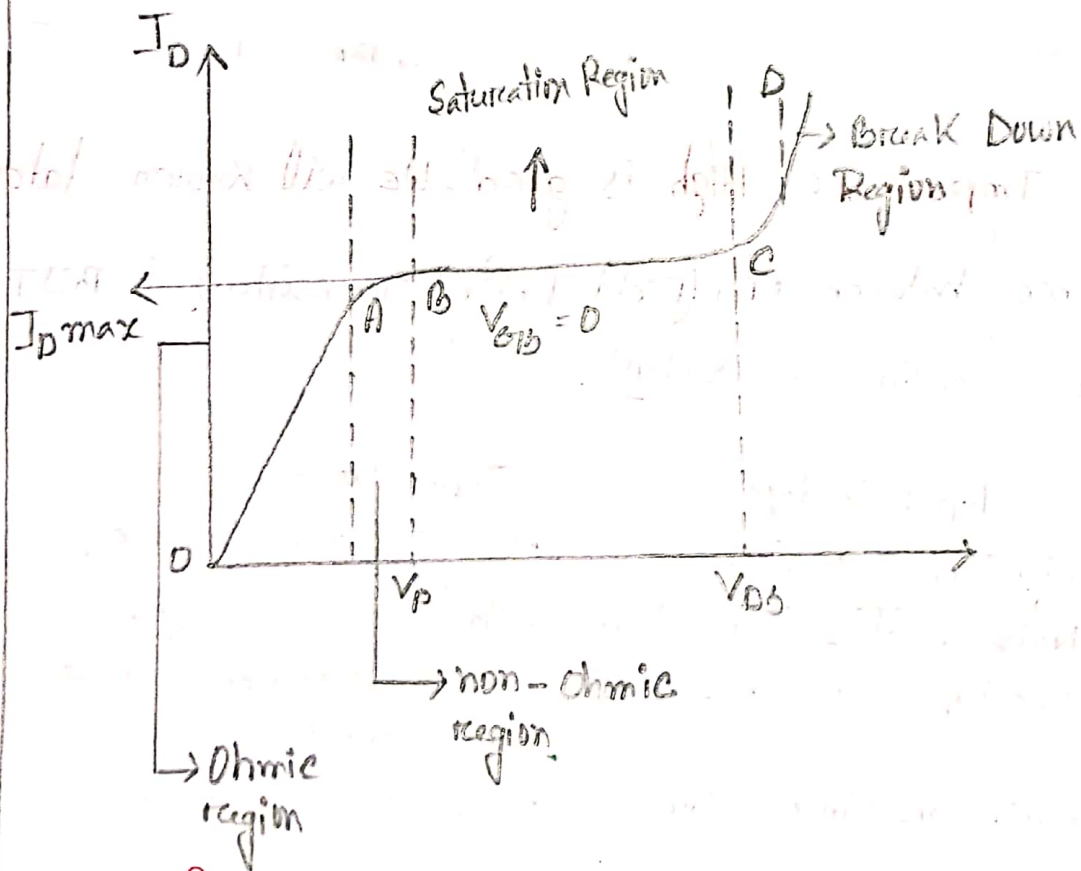 I_D
Saturation Region
D
Break Down
Region
C
A
B
V_GS = 0
I_D max
0
V_P
V_DS
non-Ohmic
region
Ohmic
region